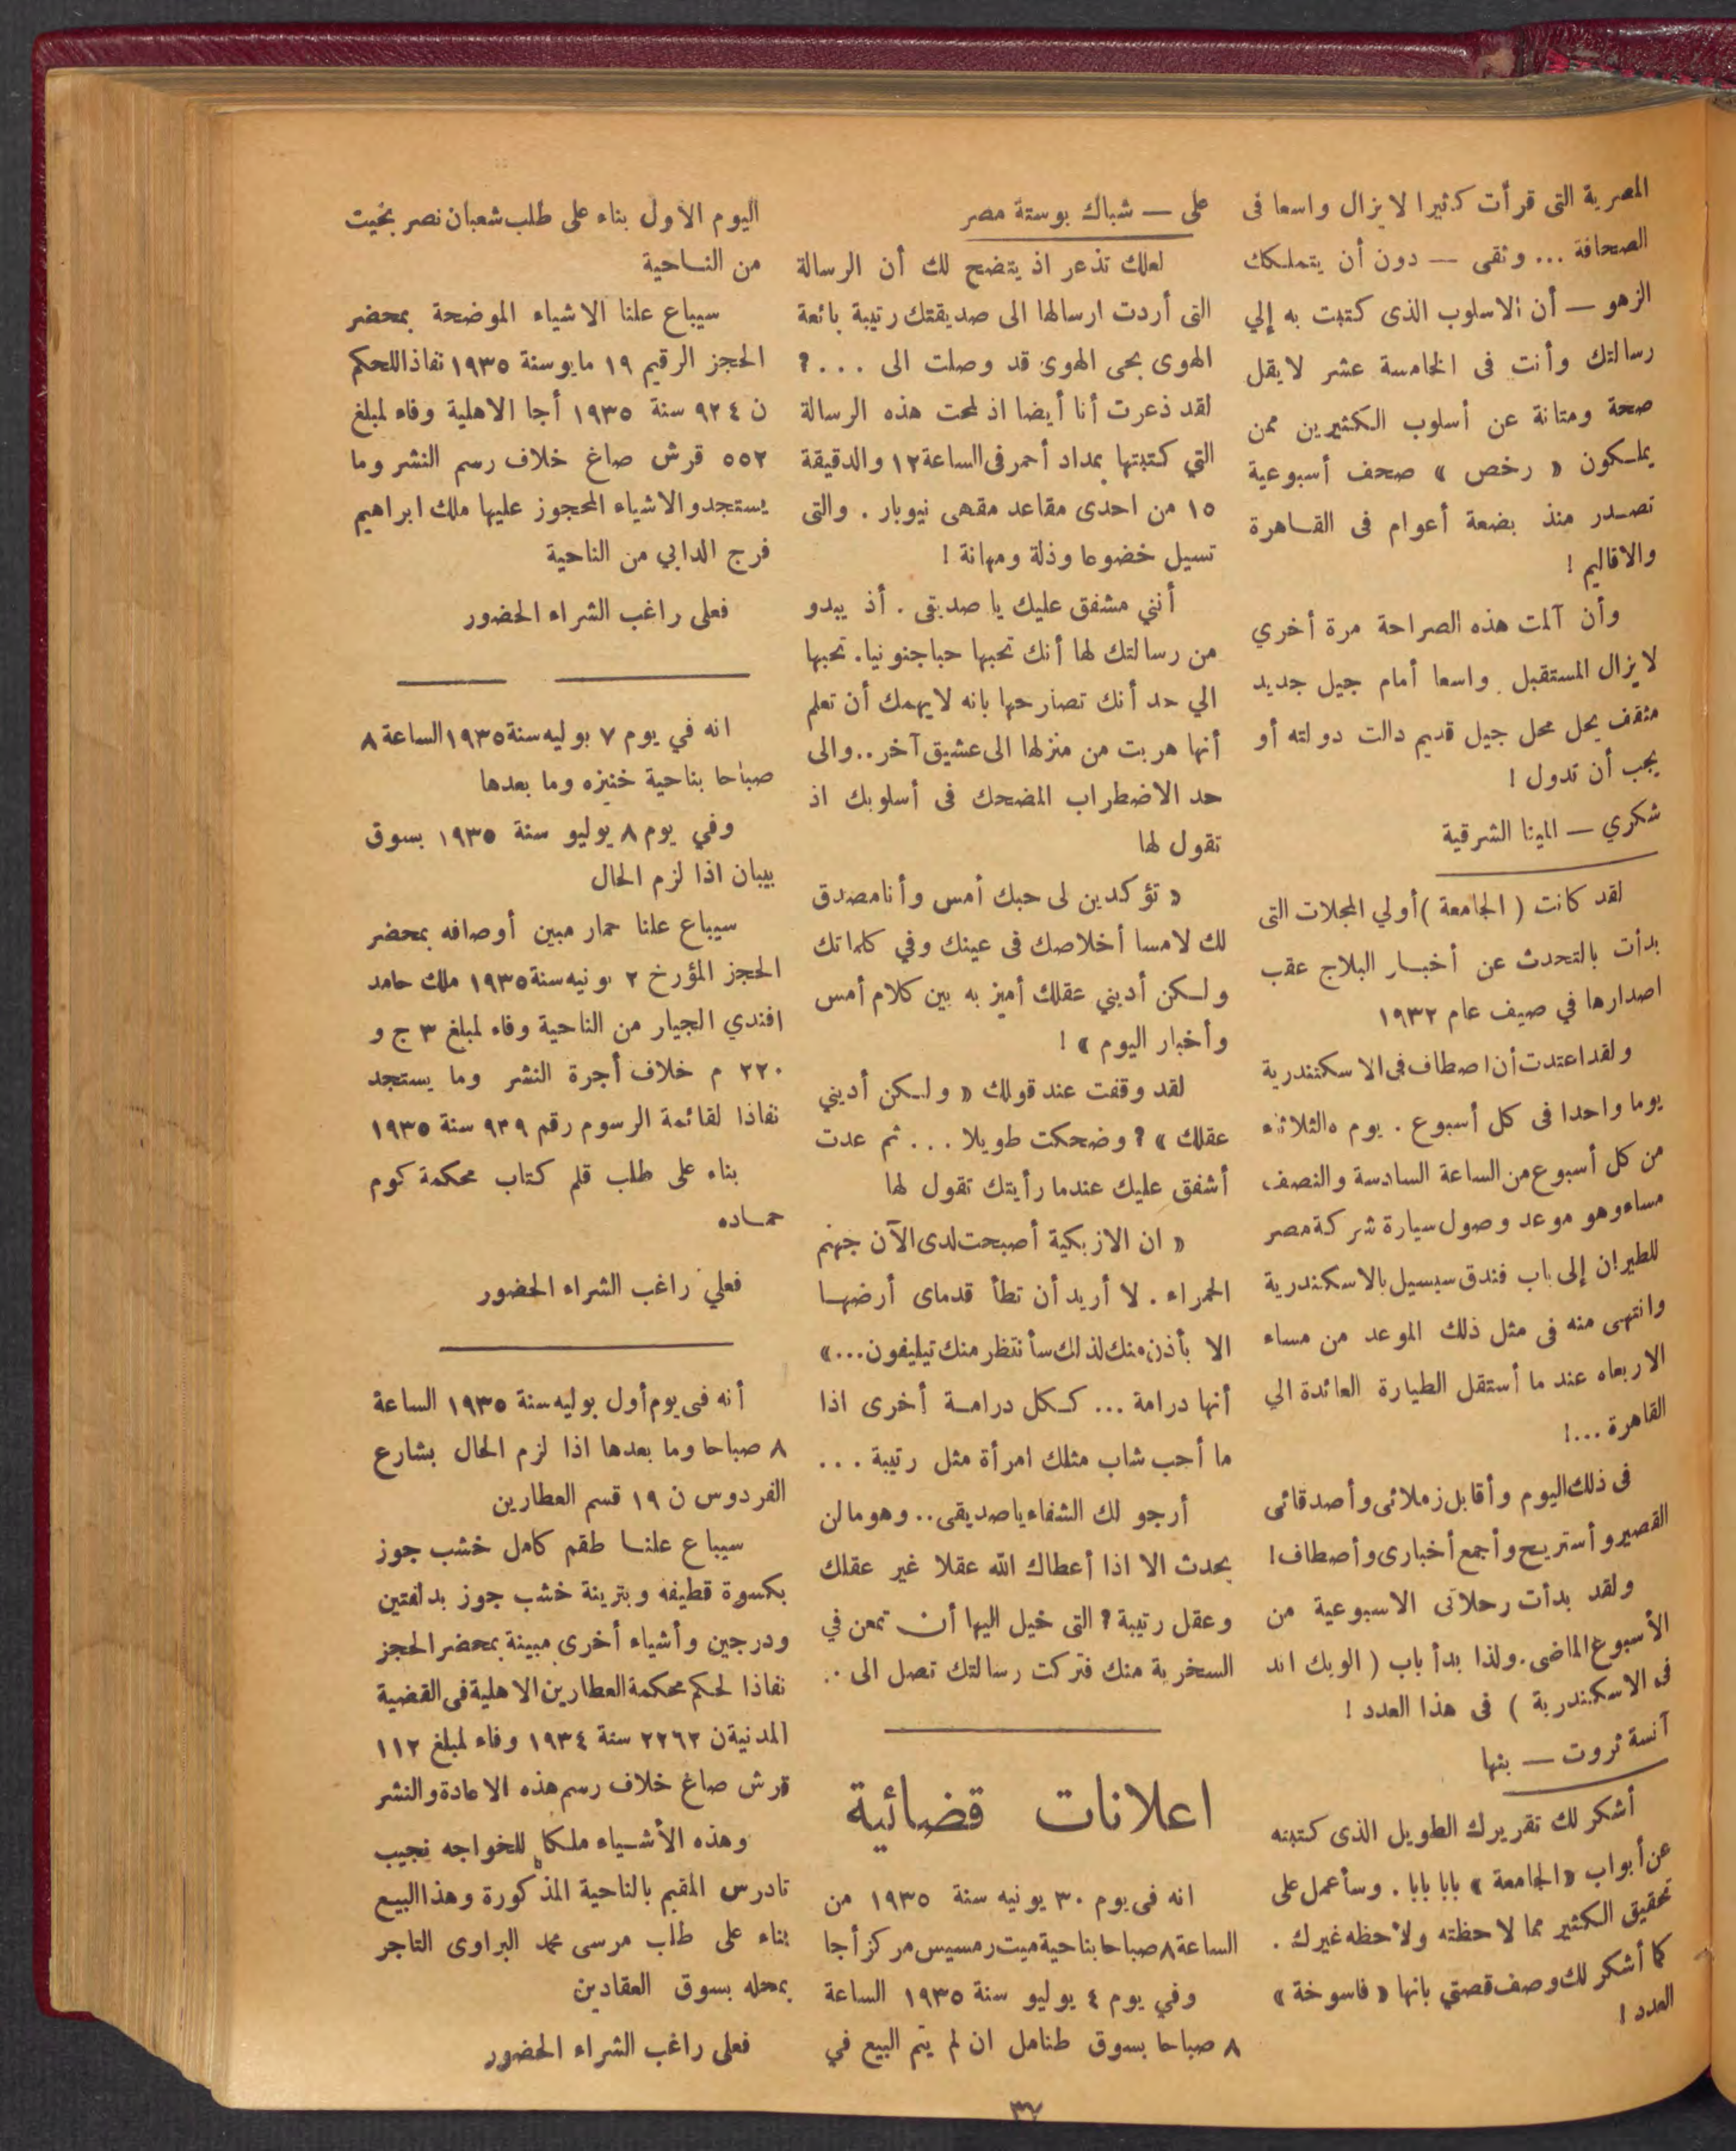 المصرية التى قرأت كثيرا لايزال واسعا فى
الصحافة ... وثقى — دون أن يتملكك
الزهو — أن الاسلوب الذى كتبت به إلي
رسالتك وأنت فى الخامسة عشر لايقل
صحة ومتانة عن أسلوب الكثيرين ممن
يملكون « رخص » صحف أسبوعية
تصدر منذ بضعة أعوام فى القاهرة
والاقاليم !
وأن آلمت هذه الصراحة مرة أخري
لايزال المستقبل واسعا أمام جيل جديد
مثقف يحل محل جيل قديم دالت دولته أو
يجب أن تدول !
شكري — المينا الشرقية
لقد كانت ( الجامعة ) أولي المجلات التى
بدأت بالتحدث عن أخبار البلاج عقب
اصدارها في صيف عام ١٩٣٢
ولقد اعتدت أن اصطاف فى الاسكتندرية
يوما واحدا فى كل أسبوع . يوم الثلاثاء
من كل أسبوع من الساعة السادسة والنصف
مساء وهو موعد وصول سيارة شركة مصر
للطيران إلى باب فندق سيسيل بالاسكندرية
وانتهى منه فى مثل ذلك الموعد من مساء
الاربعاء عند ما أستقل الطيارة العائدة الي
القاهرة ...!
فى ذلك اليوم وأقابل زملائى وأصدقائى
القصير وأستريح وأجمع أخبارى وأصطاف !
ولقد بدأت رحلاتى الاسبوعية من
الأسبوع الماضى . ولذا بدأ باب ( الويك اند
فى الاسكندرية ) فى هذا العدد !
آنسة ثروت — بنها
أشكر لك تقريرك الطويل الذى كتبته
عن أبواب « الجامعة » بابا بابا . وسأعمل على
تحقيق الكثير مما لاحظته ولاحظه غيرك .
كما أشكر لك وصف قصتي بانها « فاسوخة »
العدد !
على — شباك بوستة مصر
لعلك تذعر اذ يتضح لك أن الرسالة
التى أردت ارسالها الى صديقتك رتيبة بائعة
الهوى بحى الهوى قد وصلت الى ... ؟
لقد ذعرت أنا أيضا اذ لمحت هذه الرسالة
التي كتبتها بمداد أحمر فى الساعة ١٢ والدقيقة
١٥ من احدى مقاعد مقهى نيوبار . والتى
تسيل خضوعا وذلة ومهانة !
أنني مشفق عليك يا صديقى . أذ يبدو
من رسالتك لها أنك تحبها حبا جنونيا. تحبها
الي حد أنك تصارحها بانه لايهمك أن تعلم
أنها هربت من منزلها الى عشيق آخر .. والى
حد الاضطراب المضحك فى أسلوبك اذ
تقول لها
« تؤكدين لى حبك أمس وأنا مصدق
لك لامسا أخلاصك فى عينك وفي كلماتك
ولكن أديني عقلك أميز به بين كلام أمس
وأخبار اليوم » !
لقد وقفت عند قولك « ولكن أديني
عقلك » ؟ وضحكت طويلا ... ثم عدت
أشفق عليك عندما رأيتك تقول لها
« ان الازبكية أصبحت لدى الآن جهنم
الحمراء . لا أريد أن تطأ قدماى أرضها
الا بأذن منك لذلك سأنتظر منك تيليفون ... »
أنها درامة ... ككل درامة أخرى اذا
ما أحب شاب مثلك امرأة مثل رتيبة ...
أرجو لك الشفاء يا صديقى .. وهو ما لن
يحدث الا اذا أعطاك الله عقلا غير عقلك
وعقل رتيبة ؟ التى خيل اليها أن تمعن في
السخرية منك فتركت رسالتك تصل الى ..
اعلانات قضائية
انه فى يوم ٣٠ يونيه سنة ١٩٣٥ من
الساعة ٨ صباحا بناحية ميت رمسيس مركز أجا
وفي يوم ٤ يوليو سنة ١٩٣٥ الساعة
٨ صباحا بسوق طنامل ان لم يتم البيع في
اليوم الاول بناء على طلب شعبان نصر بخيت
من الناحية
سيباع علنا الاشياء الموضحة بمحضر
الحجز الرقيم ١٩ مايو سنة ١٩٣٥ نفاذا للحكم
ن ٩٢٤ سنة ١٩٣٥ أجا الاهلية وفاء لمبلغ
٥٥٢ قرش صاغ خلاف رسم النشر وما
يستجد والاشياء المحجوز عليها ملك ابراهيم
فرج الدابي من الناحية
فعلى راغب الشراء الحضور
انه في يوم ٧ يوليه سنة ١٩٣٥ الساعة ٨
صباحا بناحية خنيزه وما بعدها
وفي يوم ٨ يوليو سنة ١٩٣٥ بسوق
بيبان اذا لزم الحال
سيباع علنا حمار مبين أوصافه بمحضر
الحجز المؤرخ ٢ يونيه سنة ١٩٣٥ ملك حامد
افندي الجيار من الناحية وفاء لمبلغ ٣ ج و
٢٢٠ م خلاف أجرة النشر وما يستجد
نفاذا لقائمة الرسوم رقم ٩٣٩ سنة ١٩٣٥
بناء على طلب قلم كتاب محكمة كوم
حماده
فعلي راغب الشراء الحضور
أنه فى يوم أول يوليه سنة ١٩٣٥ الساعة
٨ صباحا وما بعدها اذا لزم الحال بشارع
الفردوس ن ١٩ قسم العطارين
سيباع علنا طقم كامل خشب جوز
بكسوة قطيفة وبترينة خشب جوز بدلفتين
ودرجين وأشياء أخرى مبينة بمحضر الحجز
نفاذا لحكم محكمة العطارين الاهلية فى القضية
المدنية ن ٢٢٦٢ سنة ١٩٣٤ وفاء لمبلغ ١١٢
قرش صاغ خلاف رسم هذه الاعادة والنشر
وهذه الأشياء ملكا للخواجه نجيب
تادرس المقيم بالناحية المذكورة وهذا البيع
بناء على طلب مرسى محمد البراوى التاجر
بمحله بسوق العقادين
فعلى راغب الشراء الحضور
٣٧